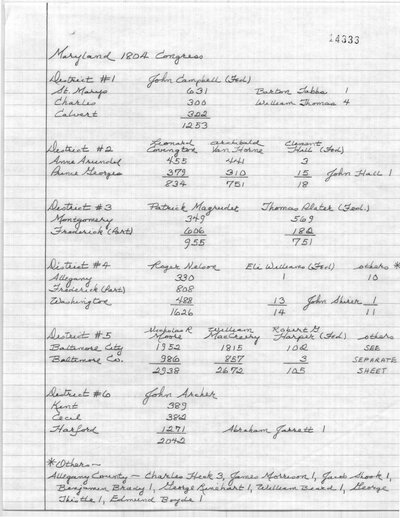 14333
Maryland 1804 Congress
District #1 John Campbell (Fed)
St. Marys 631 Barton Tabbs 1
Charles 300 William Thomas 4
Calvert 322
1253
District #2 Leonard Covington Archibald Van Horne Clement Hill (Fed)
Anne Arundel 455 441 3
Prince Georges 379 310 15 John Hall 1
834 751 18
District #3 Patrick Magruder Thomas Plater (Fed.)
Montgomery 349 569
Frederick (Part) 606 182
955 751
District #4 Roger Nelson Elie Williams (Fed) others *
Allegany 330 1 10
Frederick (Part) 808
Washington 488 13 John Sherer 1
1626 14 11
District #5 Nicholas R. Moore William MacCreery Robert G. Harper (Fed) others
Baltimore City 1952 1815 102 SEE
Baltimore Co. 986 857 3 SEPARATE
2938 2672 105 SHEET
District #6 John Archer
Kent 389
Cecil 382
Harford 1271 Abraham Jarrett 1
2042
*Others—
Allegany County — Charles Heck 3, James Morrison 1, Jacob Shook 1,
Benjamin Brady 1, George Rinehart 1, William Beard 1, George
Thistle 1, Edmund Boyde 1